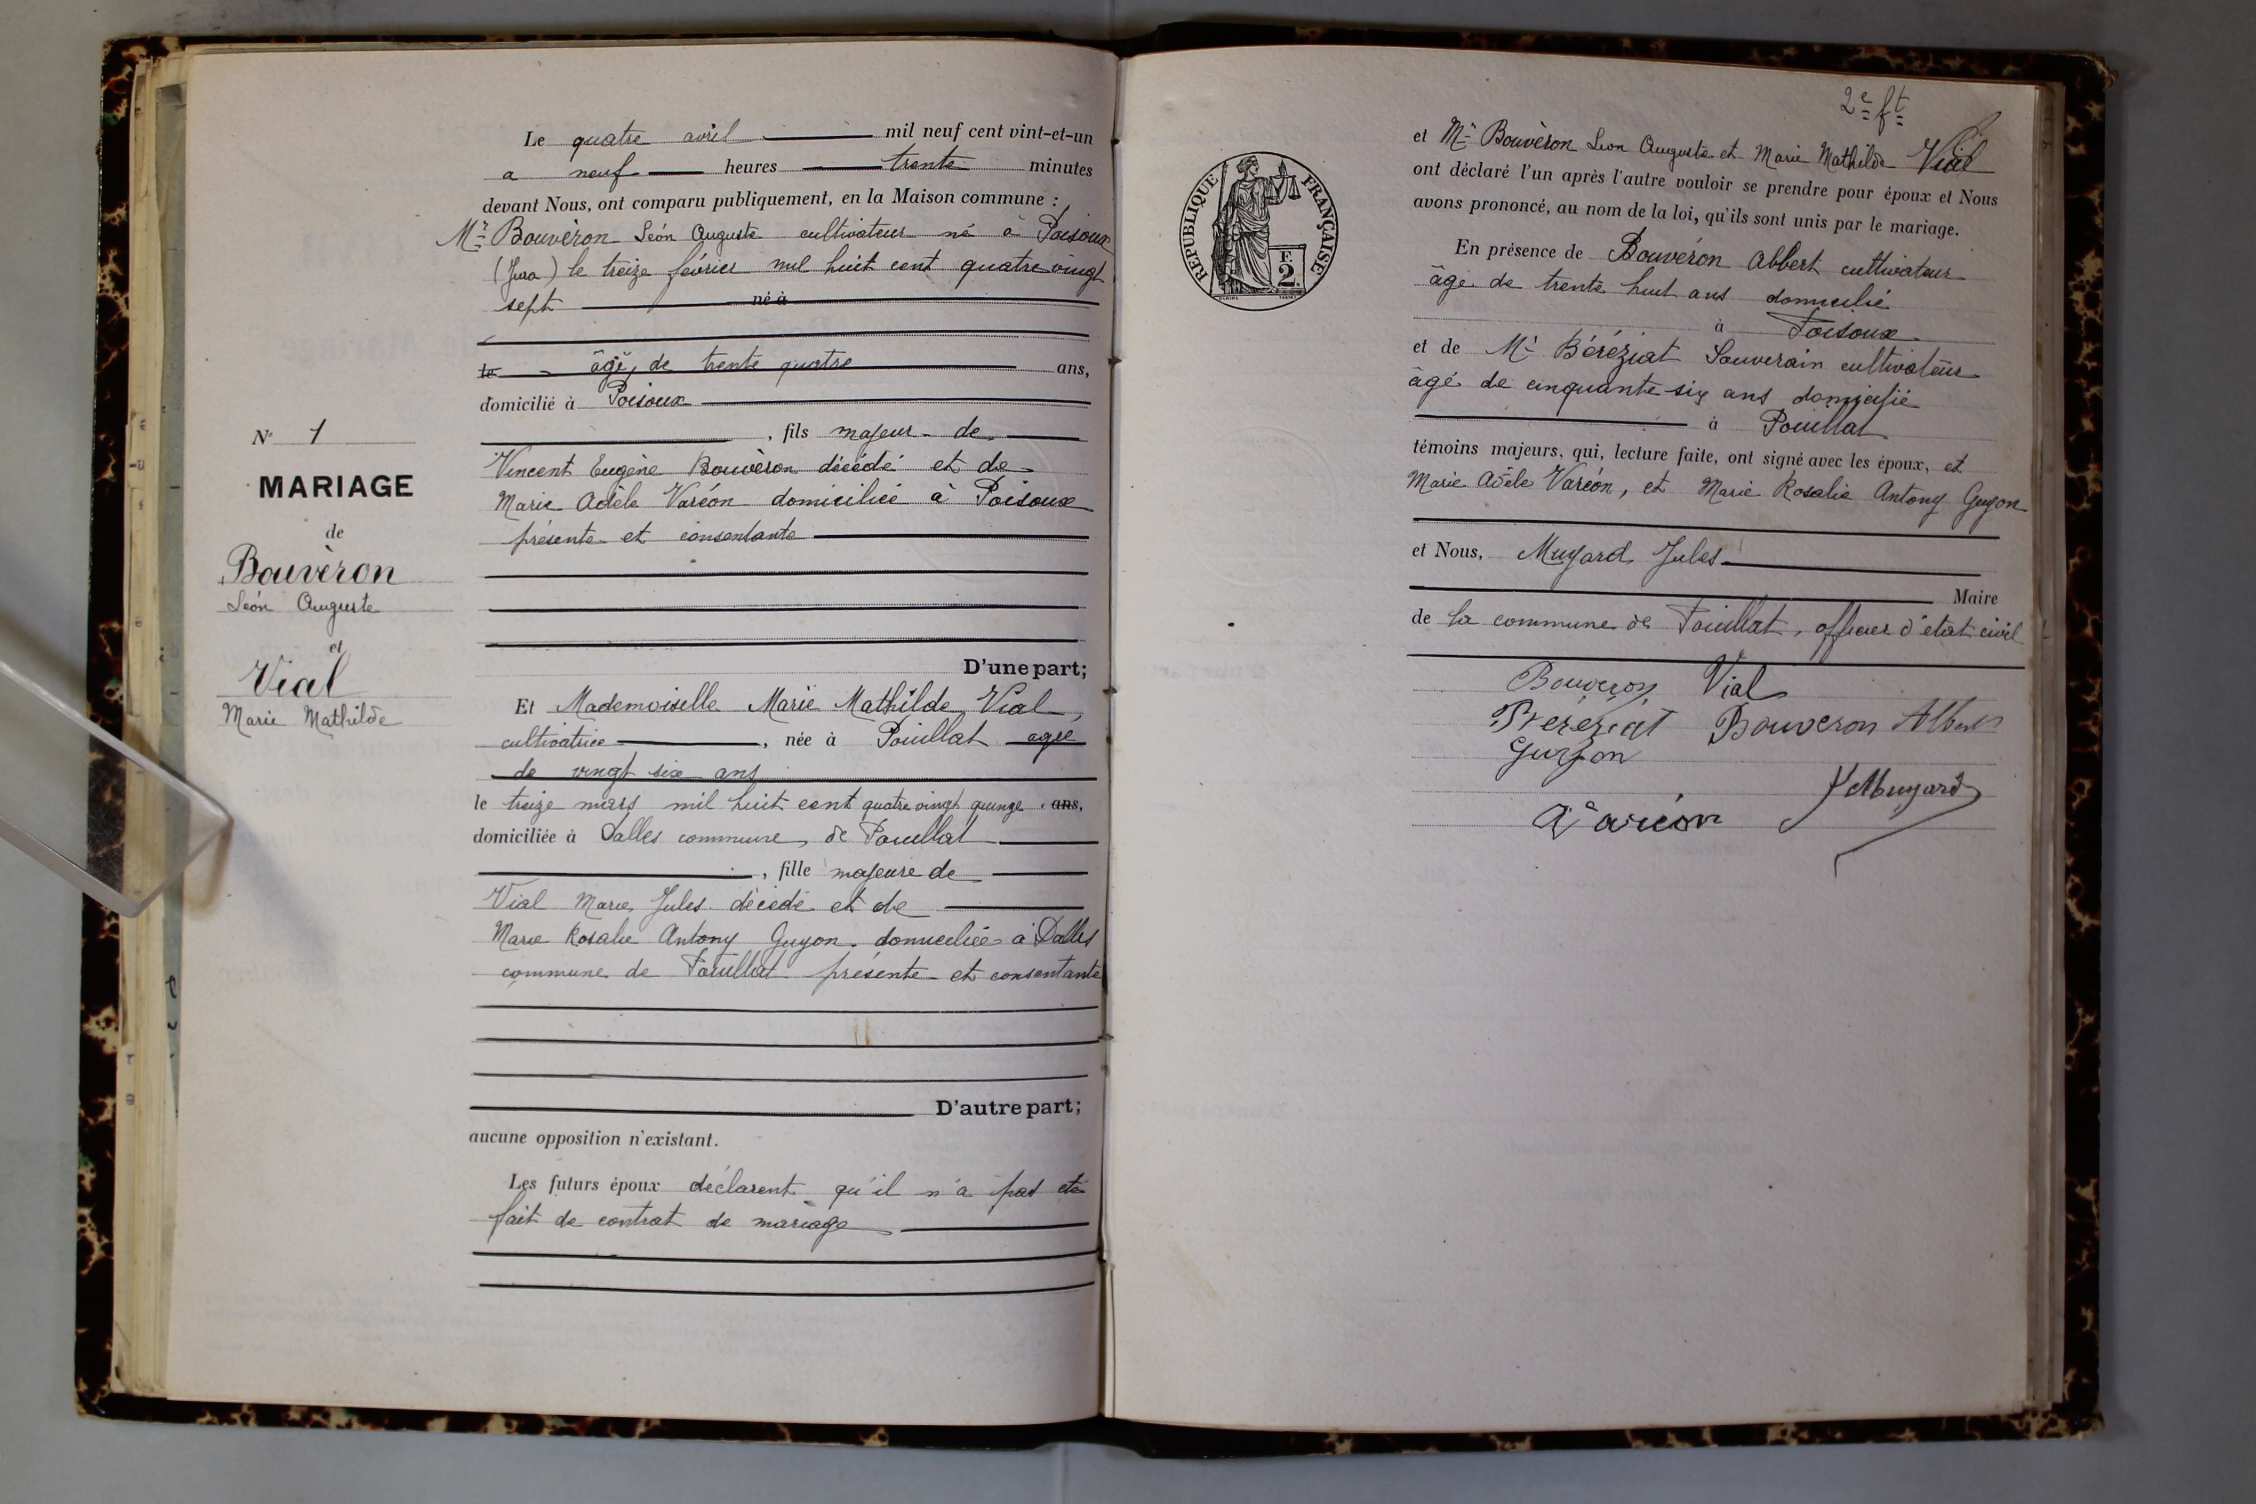 Le quatre avril mil neuf cent vint-et-un
a neuf heures trente minutes
devant Nous, ont comparu publiquement, en la Maison commune :
Mr Bouvèron Léon Auguste cultivateur né à Poisoux
(Jura) le treize février mil huit cent quatre vingt
sept né à
le âgé, de trente quatre ans,
domicilié à Poisoux
, fils majeur de
Vincent Eugène Bouvèron décédé et de
Marie Adèle Varéon domiciliée à Poisoux
présente et consentante
D'une part;
Et Mademoiselle Marie Mathilde Vial,
cultivatrice, née à Pouillat agée
de vingt six ans
le treize mars mil huit cent quatre vingt quinze . ans,
domiciliée à Dalles commune de Pouillat
, fille majeure de
Vial Marie Jules décédé et de
Marie Rosalie Antony Guyon. domiciliée à Dalles
commune de Pouillat présente et consentante
D'autre part;
aucune opposition n'existant.
Les futurs époux déclarent qu'il n'a pas été
fait de contrat de mariage
N° 1
MARIAGE
de
Bouvèron
Léon Auguste
et
Vial
Marie Mathilde
2e ft
RÉPUBLIQUE FRANÇAISE
F.
2.
et Mr Bouvèron Léon Auguste et Marie Mathilde Vial
ont déclaré l'un après l'autre vouloir se prendre pour époux et Nous
avons prononcé, au nom de la loi, qu'ils sont unis par le mariage.
En présence de Bouvéron Albert cultivateur
âgé de trente huit ans domicilié
à Poisoux
et de Mr Béréziat Souverain cultivateur
âgé de cinquante six ans domicilié
à Pouillat
témoins majeurs, qui, lecture faite, ont signé avec les époux, et
Marie Adèle Varéon, et Marie Rosalie Antony Guyon
et Nous, Muyard Jules
Maire
de la commune de Pouillat, officier d'état civil
Bouveron Vial
Béréziat Bouveron Albert
Guyon
J Muyard
A Varéon